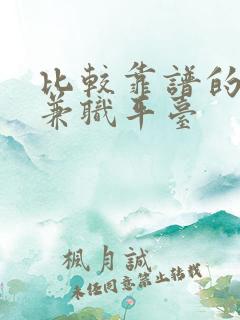 比較靠譜的
兼職平臺
楓月誠
未經同意禁止轉載